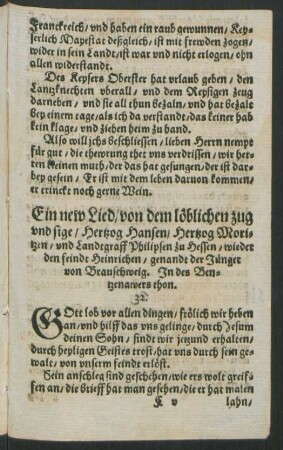 Franckreich/ vnd haben ein raub gewunnen/ Key⸗
serlich Mayestat deßgleich/ ist mit frewden zogen/
wider in sein Landt/ ist war vnd nicht erlogen/ ohn
allen widerstandt.
Des Keysers Oberster hat vrlaub geben/ den
Lantzknechten vberall/ vnd dem Reysigen zeug
darneben/ vnd sie all thun bezaln/ vnd hat bezalt
bey einem tage/ als ich da verstandt/ das keiner hab
kein klage/ vnd ziehen heim zu hand.
Also will ichs beschliessen/ lieben Herrn nempt
für gut/ die thewrung thet vns verdrissen/ wir het⸗
ten keinen muth/ der das hat gesungen/ der ist dar⸗
bey gesein/ Er ist mit dem leben daruon kommen/
er trincke noch gerne Wein.
Ein new Lied/ von dem löblichen zug
vnd sige/ Hertzog Hansen/ Hertzog Mori⸗
tzen/ vnd Landtgraff Philipsen zu Hessen/ wieder
den feindt Heinrichen/ genandt der Jünger
von Brauschweig. In des Ben⸗
tzenawers thon.
32.
GOtt lob vor allen dingen/ frölich wir heben
an/ vnd hilff das vns gelinge/ durch Jesum
deinen Sohn/ findt wir jetzund erhalten/
durch heyligen Geistes trost/ hat vns durch sein ge⸗
walt/ von vnserm feindt erlöst.
Sein anschleg sind geschehen/ wie ers wolt greif⸗
fen an/ die brieff hat man gesehen/ die er hat malen
K v lahn/